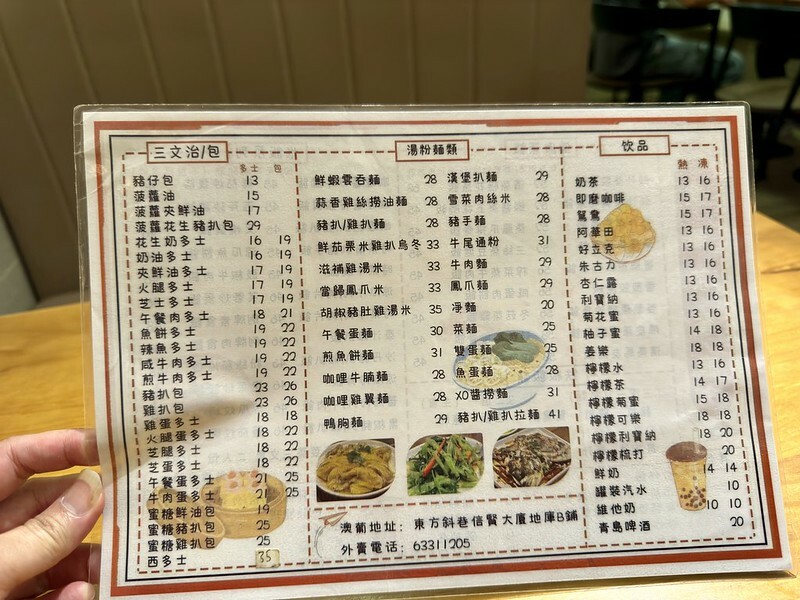 三文治/包
多士 包
豬仔包 13
菠蘿油 15
菠蘿夾鮮油 17
菠蘿花生豬扒包 29
花生奶多士 16 19
奶油多士 16 19
夾鮮油多士 17 19
火腿多士 17 19
芝士多士 17 19
午餐肉多士 18 21
魚餅多士 19 22
辣魚多士 19 22
咸牛肉多士 19 22
煎牛肉多士 19 22
豬扒包 23 26
雞扒包 23 26
雞蛋多士 18 18
火腿蛋多士 18 22
芝腿多士 18 22
芝蛋多士 18 22
午餐蛋多士 21 25
牛肉蛋多士 21 25
蜜糖鮮油包 19
蜜糖豬扒包 25
蜜糖雞扒包 25
西多士 35
湯粉麵類
鮮蝦雲吞麵 28
蒜香雞絲撈油麵 28
豬扒/雞扒麵 28
鮮茄栗米雞扒烏冬 33
滋補雞湯米 33
當歸鳳爪米 33
胡椒豬肚雞湯米 35
午餐蛋麵 30
煎魚餅麵 31
咖哩牛腩麵 28
咖哩雞翼麵 28
鴨胸麵 29
漢堡扒麵 29
雪菜肉絲米 28
豬手麵 28
牛尾通粉 31
牛肉麵 29
鳳爪麵 29
淨麵 20
菜麵 25
雙蛋麵 25
魚蛋麵 28
XO醬撈麵 31
豬扒/雞扒拉麵 41
飲品
熱 凍
奶茶 13 16
即磨咖啡 15 17
鴛鴦 15 17
阿華田 13 16
好立克 13 16
朱古力 13 16
杏仁露 13 16
利寶納 13 16
菊花蜜 13 16
柚子蜜 14 18
姜樂 18 18
檸檬水 13 16
檸檬茶 14 17
檸檬菊蜜 15 18
檸檬可樂 18 18
檸檬利寶納 18 20
檸檬梳打 20
鮮奶 14 14
罐裝汽水 10
維他奶 10 10
青島啤酒 20
澳葡地址：東方斜巷信賢大廈地庫B鋪
外賣電話：63311205